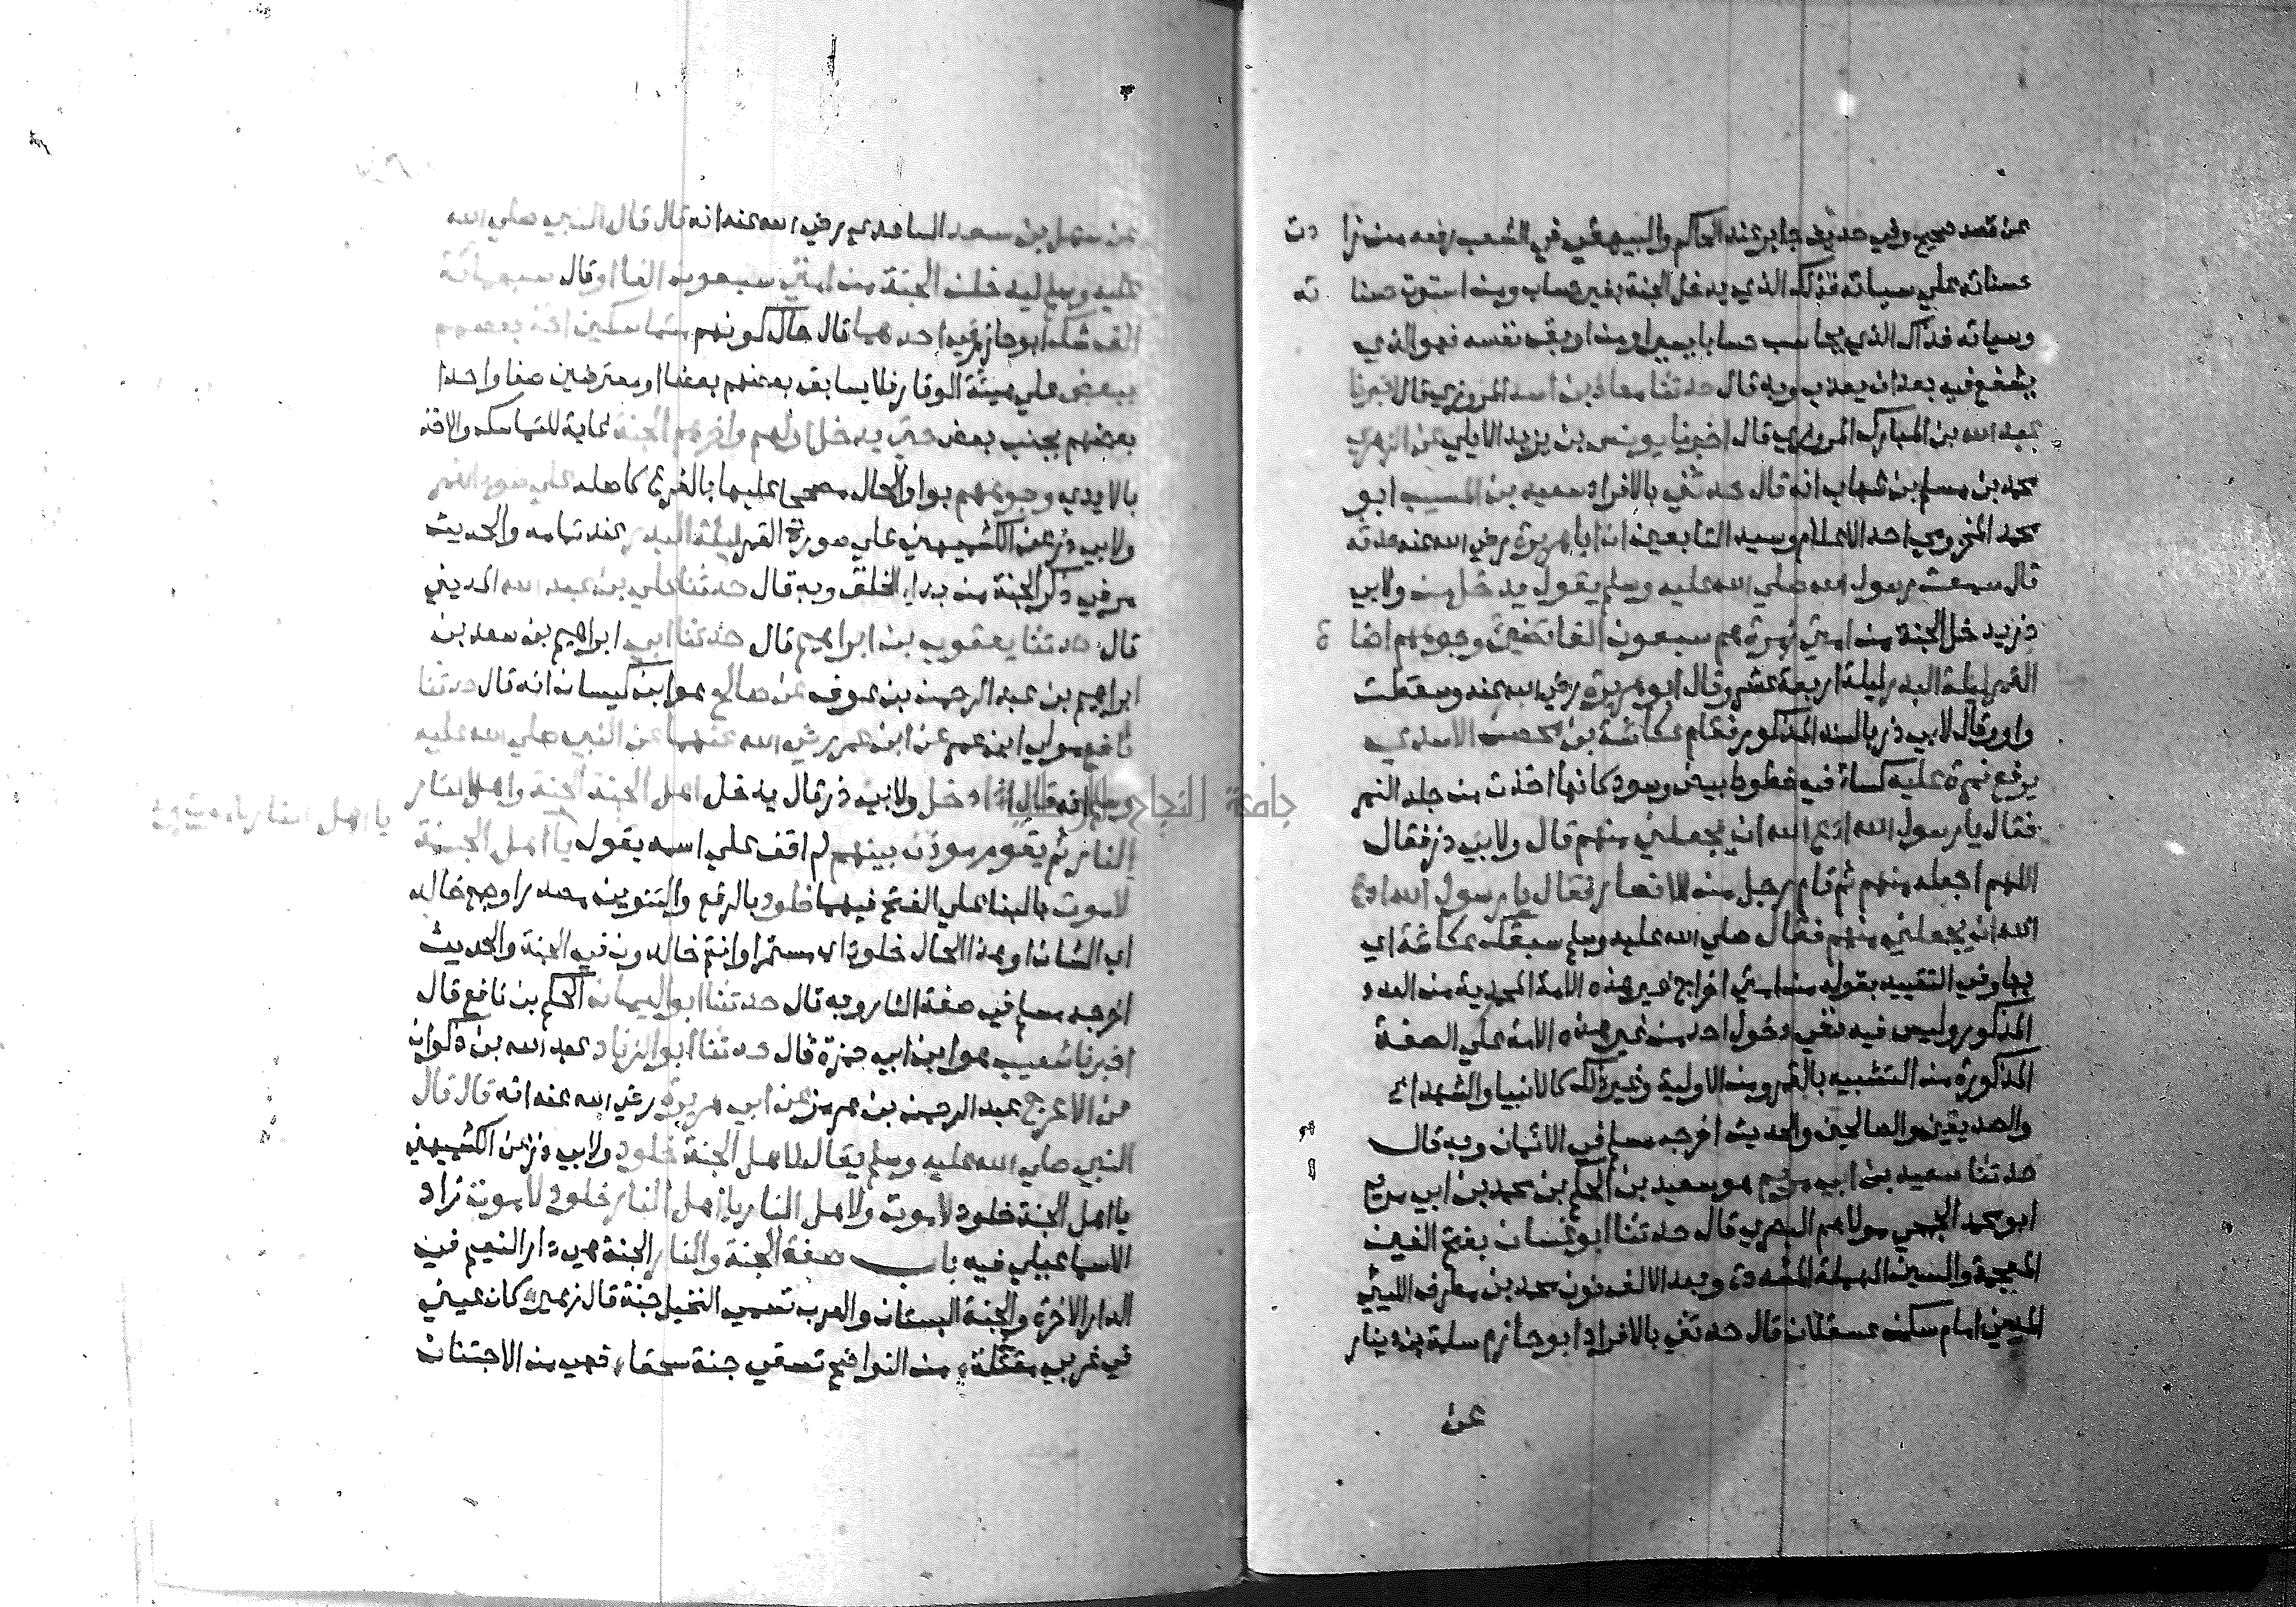 عن قصد صحيح وفي حديث جابر عند الحاكم والبيهقي في الشعب رفعه من زا دت
حسناته علي سياته فذلك الذي يدخل الجنة بغير حساب ومن استوت حسنا ته
وسياته فذاك الذي يحاسب حسابا يسيرا ومن اوبق نفسه فهو الذي
يشفع فيه بعد ان يعذب وبه قال حدثنا معاذ بن اسد المروزي قال اخبرنا
عبد الله بن المبارك المروزي قال اخبرنا يونس بن يزيد الايلي عن الزهري
محمد بن مسلم بن شهاب انه قال حدثني بالافراد سعيد بن المسيب ابو
محمد المخزومي احد الاعلام وسيد التابعين ان ابا هريرة رضي الله عنه حدثه
قال سمعت رسول الله صلي الله عليه وسلم يقول يدخل من ولابي
ذر يدخل الجنة من امتي زمرة هم سبعون الفا تضيئ وجوههم اضا ة
القمر ليلة البدر ليلة اربعة عشر وقال ابو هريرة رضي الله عنه وسقطت
واو وقال لابي ذر بالسند المذكور فقام عكاشة بن محصن الاسدي
يرفع نمرة عليه كساء فيه خطوط بيض وسود كانها اخذت من جلد النمر
فقال يا رسول الله ادع الله ان يجعلني منهم قال ولابي ذر فقال
اللهم اجعله منهم ثم قام رجل من الانصار فقال يا رسول الله ادع
الله ان يجعلني منهم فقال صلي الله عليه وسلم سبقك عكاشة اي
بها وفي التقييد بقوله من امتي اخراج غير هذه الامة المحمدية من العدد
المذكور وليس فيه نفي دخول احد من غير هذه الامة علي الصفة
المذكورة من التشبيه بالقمر ومن الاولية وغير ذلك كالانبيا والشهدا
والصديقين والصالحين والحديث اخرجه مسلم في الائمان وبه قال
حدثنا سعيد بن ابي مريم هو سعيد بن الحكم بن محمد بن ابي مريم
ابو محمد الجمحي مولاهم البصري قال حدثنا ابو غسان بفتح الغين
المعجمة والسين المهملة المشددة وبعد الالف نون محمد بن مطرف الليثي
المديني امام سكن عسقلان قال حدثني بالافراد ابو حازم سلمة بن دينار
عن
عن سهل بن سعد الساعدي رضي الله عنه انه قال قال النبي صلي الله
عليه وسلم ليدخلن الجنة من امتي سبعون الفا او قال سبعماية
الف شك ابو حازم في احدهما قال حال كونهم متماسكين اخذ بعضهم
ببعض علي هيئة الوقار فلا يسابق بعضهم بعضا او معترضين صفا واحدا
بعضهم بجنب بعض حتي يدخل اولهم واخرهم الجنة غاية للتماسك والاخذ
بالايدي وجوههم بواو الحال مصحح عليها بالفرع كاصله علي ضوء القمر
ولابي ذر عن الكشميهني علي صورة القمر ليلة البدر عند تمامه والحديث
مر في ذكر الجنة من بدء الخلق وبه قال حدثنا علي بن عبد الله المديني
قال حدثنا يعقوب بن ابراهيم قال حدثنا ابي ابراهيم بن سعد بن
ابراهيم بن عبد الرحمن بن عوف عن صالح هو ابن كيسان انه قال حدثنا
نافع مولي ابن عمر عن ابن عمر رضي الله عنهما عن النبي صلي الله عليه
وسلم انه قال اذا دخل ولابي ذر قال يدخل اهل الجنة الجنة واهل النار
النار ثم يقوم موذن بينهم لم اقف علي اسمه يقول يا اهل الجنة
لا موت بالبنا علي الفتح فيهما خلود بالرفع والتنوين مصدر او جمع خالد
اي الشان او هذا الحال خلود اي مستمر او انتم خالدون في الجنة والحديث
اخرجه مسلم في صفة النار وبه قال حدثنا ابو اليمان الحكم بن نافع قال
اخبرنا شعيب هو ابن ابي حمزة قال حدثنا ابو الزناد عبد الله بن ذكوان
عن الاعرج عبد الرحمن بن هرمز عن ابي هريرة رضي الله عنه انه قال قال
النبي صلي الله عليه وسلم يقال لاهل الجنة خلود ولابي ذر عن الكشميهني
يا اهل الجنة خلود لا موت ولاهل النار يا اهل النار خلود لا موت زاد
الاسماعيلي فيه باب صفة الجنة والنار الجنة هي دار النعيم في
الدار الاخرة والجنة البستان والعرب تسمي النخيل جنة قال زهير كان عيني
في غربي مقتلة من النواضح تسقي جنة سحقا فهي من الاجتنان
جامعة النجاح الوطنية